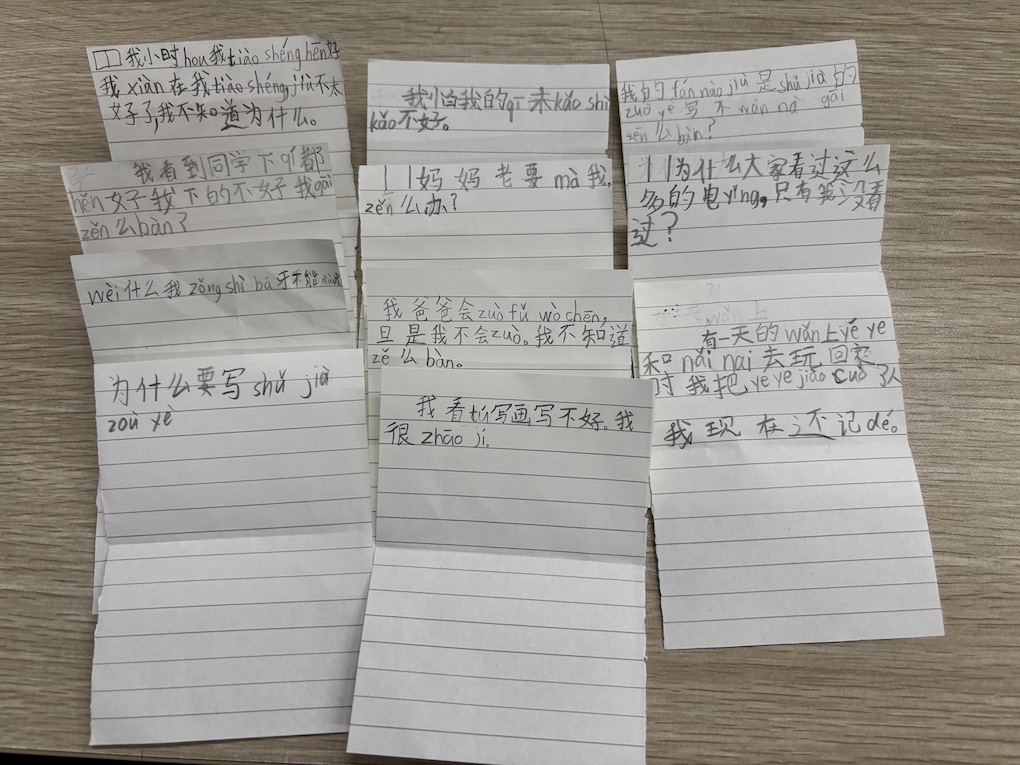 我小时hou我tiào shéng hěn好
我xiàn在我tiào shéng, jiù不太
好了,我不知道为什么。
我看到同学下qí都
hěn好我下的不好我gāi
zěn么bàn?
wèi什么我zǒng shì bá牙不能
为什么要写shǔ jià
zoù yè
我小白我的qī末kǎo shì
kǎo不好。
妈妈老要mà我,
zěn么办?
我爸爸会zuò fǔ wò chēn,
旦是我不会zuò。我不知道
zě么bàn。
我看tú写画写不好。我
很zhāo jí.
我的fán nǎo jiù是shǔ jià的
zuò yè写不wán nà gāi
zěn么bàn?
为什么大家看过这么
多的电yǐng,只有我没看
过?
天wǎn上
有一天的wǎn上yé ye
和nǎi nai去玩回家
时我把yé ye jiào cuò
我现在还不记dé。